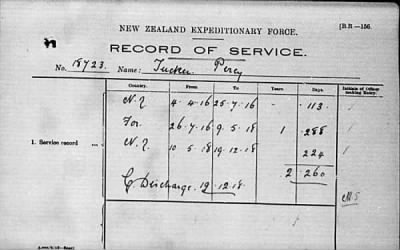 NEW ZEALAND EXPEDITIONARY FORCE. [B.R.—156.
RECORD OF SERVICE.
No. 18723. Name: Tucker Percy
Country. From To Years. Days. Initials of Officer making Entry.
N.Z 4-4-16 25-7-16 113
For. 26-7-16 9.5.18 1 288
1. Service record ... N.Z. 10.5.18 19.12.18 224
2 260
Discharge 19.12.18